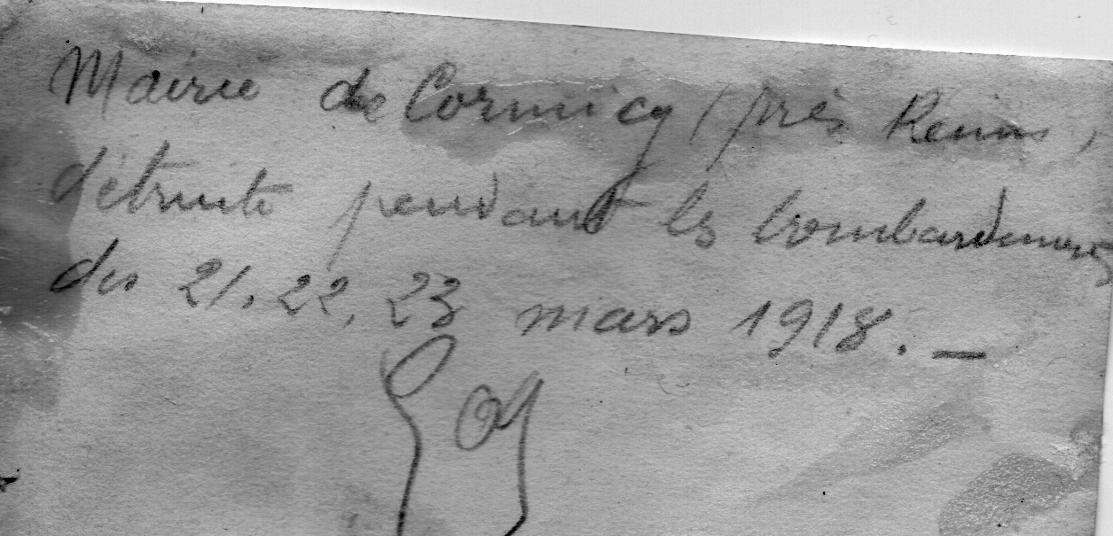 Mairie de Cormicy (près Reims)
détruite pendant les bombardements
des 21, 22, 23 mars 1918. —